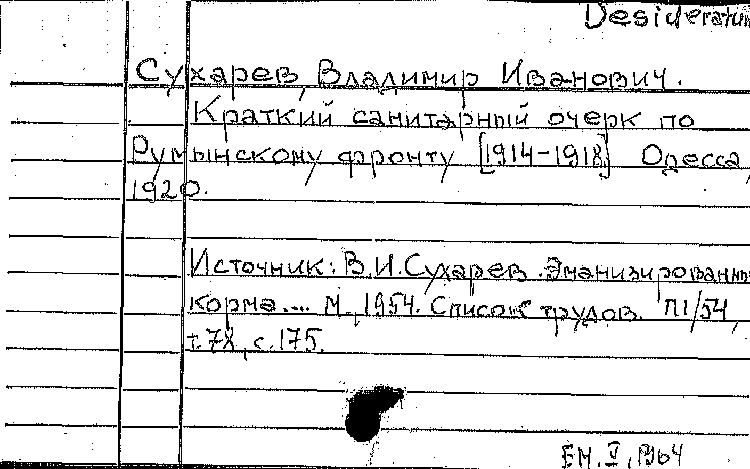 Desideratum
Сухарев, Владимир Иванович.
Краткий санитарный очерк по
Румынскому фронту [1914-1918] Одесса,
1920.
Источник: В.И.Сухарев. Энанизированные
корма.... М., 1954. Список трудов. П1/54,
т.78, с.175.
ЕМ. V, 1964